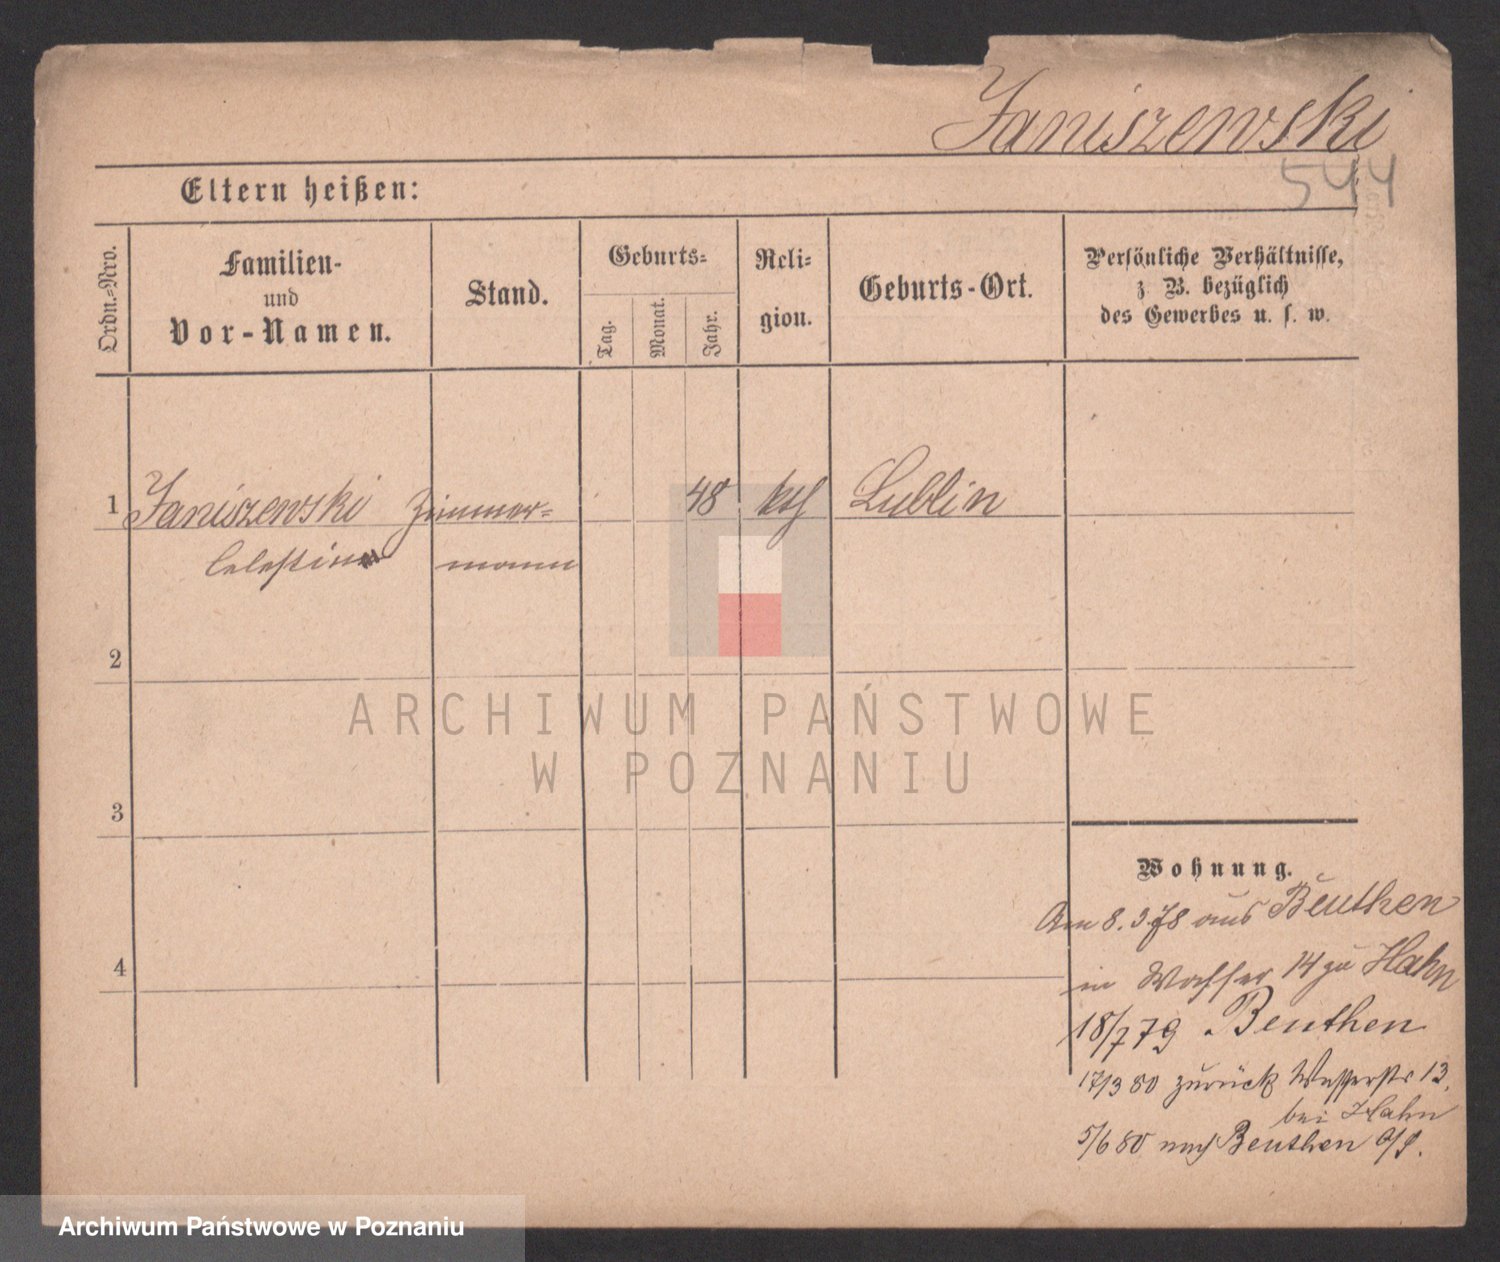 Janiszewski
544
Eltern heißen:
Ordn.-Nro.
Familien-
und
Vor-Namen.
Stand.
Geburts-
Tag.
Monat.
Jahr.
Reli-
gion.
Geburts-Ort.
Persönliche Verhältnisse,
z B. bezüglich
des Gewerbes u. s. w.
1 Janiszewski Zimmer- 48 kth Lublin
Celestin mann
2
3
4
Wohnung.
Am 8. 3. 78 aus Beuthen
in Wasser 14 zu Hahn
18/7 79 Beuthen
17/3 80 zurück Wasserstr 13.
bei Hahn
5/6 80 nach Beuthen O/S.
ARCHIWUM PAŃSTWOWE
W POZNANIU
Archiwum Państwowe w Poznaniu